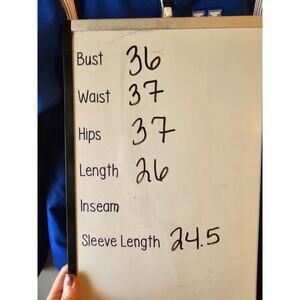 Bust 36
Waist 37
Hips 37
Length 26
Inseam
Sleeve Length 24.5